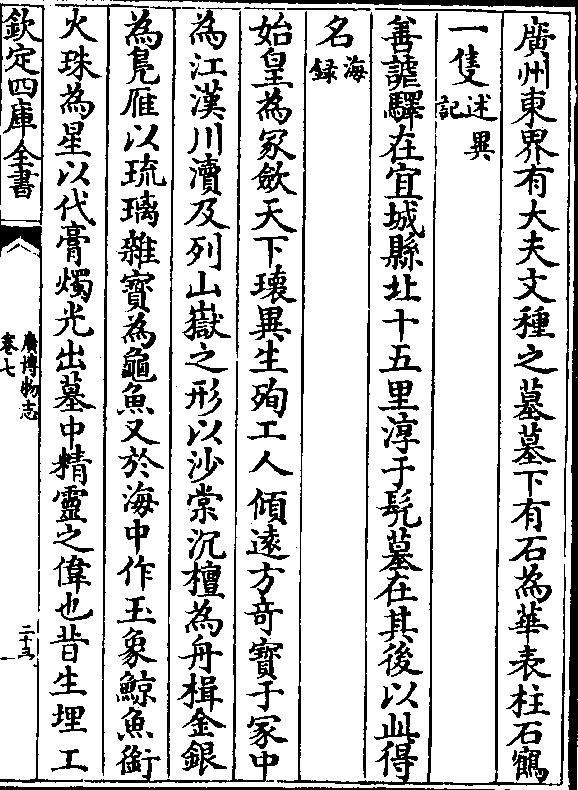 廣州東界有大夫文種之墓墓下有石為華表柱石鶴
一隻述異記
善謔驛在宜城縣北十五里淳于髠墓在其後以此得
名海録
始皇為冢斂天下瓌異生殉工人傾遠方奇寶于冢中
為江漢川瀆及列山嶽之形以沙棠沉檀為舟楫金銀
為鳧雁以琉璃雜寶為龜魚又於海中作玉象鯨魚銜
火珠為星以代膏燭光出墓中精靈之偉也昔生埋工
欽定四庫全書
廣博物志
卷七
二十五